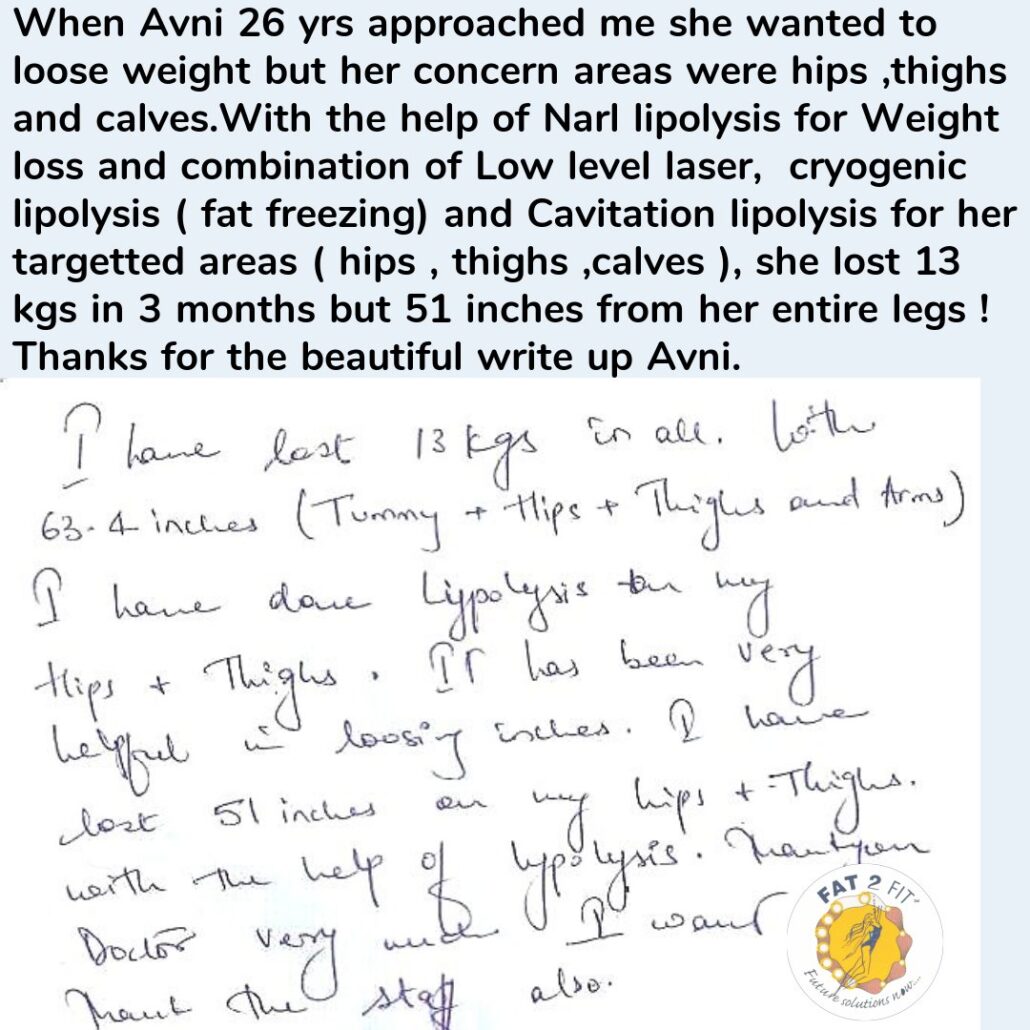 When Avni 26 yrs approached me she wanted to
loose weight but her concern areas were hips ,thighs
and calves.With the help of Narl lipolysis for Weight
loss and combination of Low level laser,  cryogenic
lipolysis ( fat freezing) and Cavitation lipolysis for her
targetted areas ( hips , thighs ,calves ), she lost 13
kgs in 3 months but 51 inches from her entire legs !
Thanks for the beautiful write up Avni.
I have lost 13 kgs in all. With
63.4 inches (Tummy + Hips + Thighs and Arms)
I have done Lippolysis on my
Hips + Thighs. IT has been very
helpful in loosing inches. I have
lost 51 inches on my hips + Thighs.
with the help of lypolysis. Thankyou
Doctor very much I want
Thank the staff also.
FAT 2 FIT
Future solutions now...